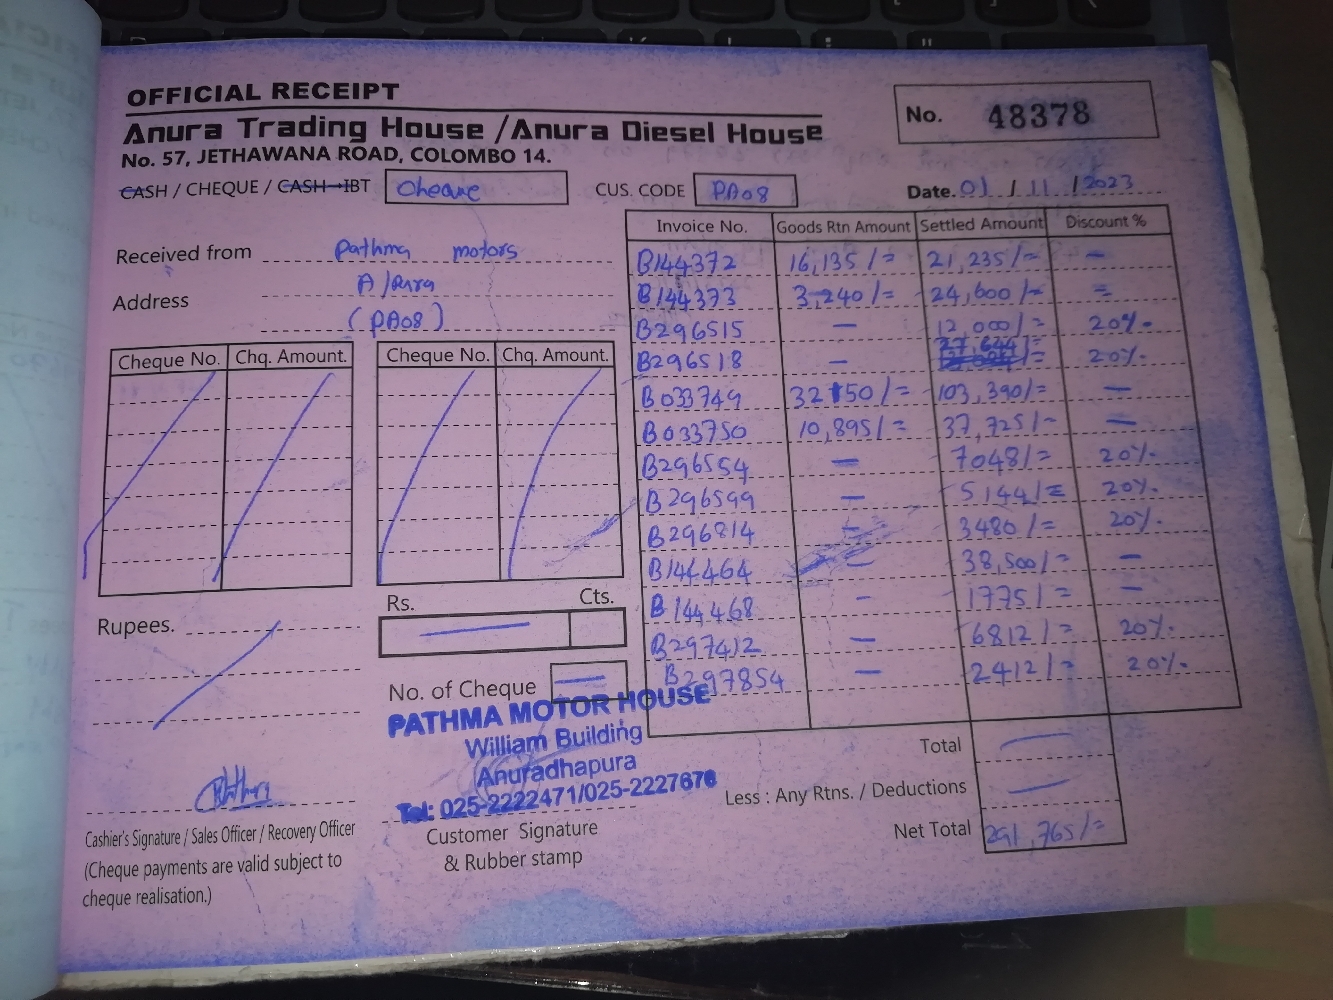 OFFICIAL RECEIPT
Anura Trading House / Anura Diesel House
No. 57, JETHAWANA ROAD, COLOMBO 14.
No. 48378
CASH / CHEQUE / CASH-IBT Cheque CUS. CODE PA08 Date. 01 / 11 / 2023
Received from Pathma motors
Address A/Pura
(PA08)
Cheque No. Chq. Amount. Cheque No. Chq. Amount.
Invoice No. Goods Rtn Amount Settled Amount Discount %
B144372 16,135/= 21,235/= —
B144373 3,240/= 24,600/= =
B296515 — 12,000/= 20%.
B296518 — 27,644/= 20%.
B033749 32150/= 103,390/= —
B033750 10,895/= 37,725/= —
B296554 — 7048/= 20%.
B296599 — 5144/= 20%.
B296814 — 3480/= 20%.
B144464 — 38,500/= —
B144468 - 1775/= —
B297412 — 6812/= 20%.
B297854 — 2412/= 20%.
Rs. Cts.
Rupees.
No. of Cheque —
PATHMA MOTOR HOUSE
William Building
Anuradhapura
Tel: 025-2222471/025-2227676
Total —
Less : Any Rtns. / Deductions —
Net Total 291,765/=
Cashier's Signature / Sales Officer / Recovery Officer
(Cheque payments are valid subject to
cheque realisation.)
Customer Signature
& Rubber stamp